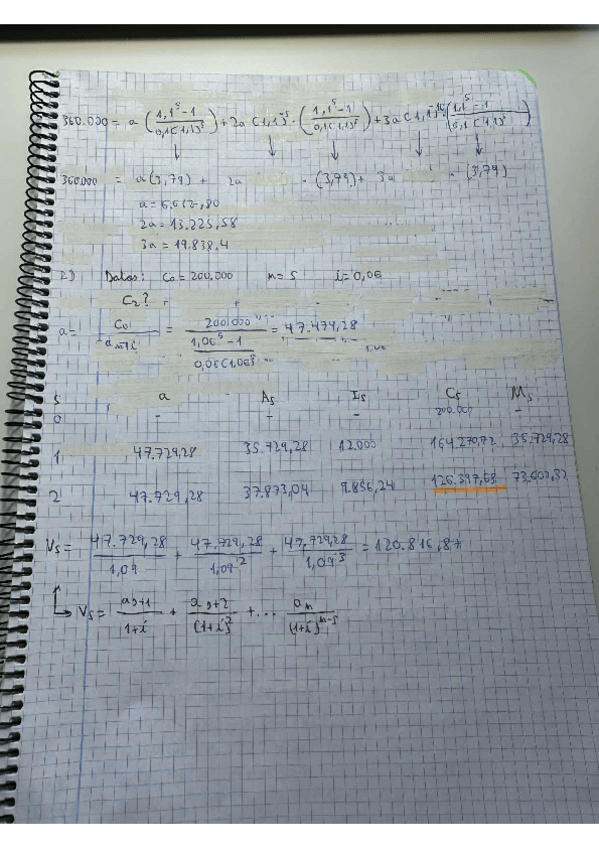 360.000 = a (1,1⁵-1 / 0,1(1,1)⁵) + 2a (1,1)⁻⁵ · (1,1⁵-1 / 0,1(1,1)⁵) + 3a (1,1)⁻¹⁰ · (1,1⁵-1 / 0,1(1,1)⁵)
360000 = a (3,79) + 2a · (3,79) + 3a · (3,79)
2a = 13.225,58
3a = 19.838,4
2) Datos: C₀ = 200.000 n = 5 i = 0,06
C₂?
a = C₀ / a n¬i = 200000 / (1,06⁵-1 / 0,06(1,06)⁵) = 47.479,28
s a As Is Cs Ms
0 - - - 200.000 -
1 47.729,28 35.729,28 12.000 164.270,72 35.729,28
2 47.729,28 37.873,04 9.856,24 126.397,68 73.602,32
Vs = 47.729,28 / 1,09 + 47.729,28 / 1,09² + 47.729,28 / 1,09³ = 120.816,87
↳ Vs = as+1 / 1+i + as+2 / (1+i)² + ... an / (1+i)ⁿ⁻ˢ